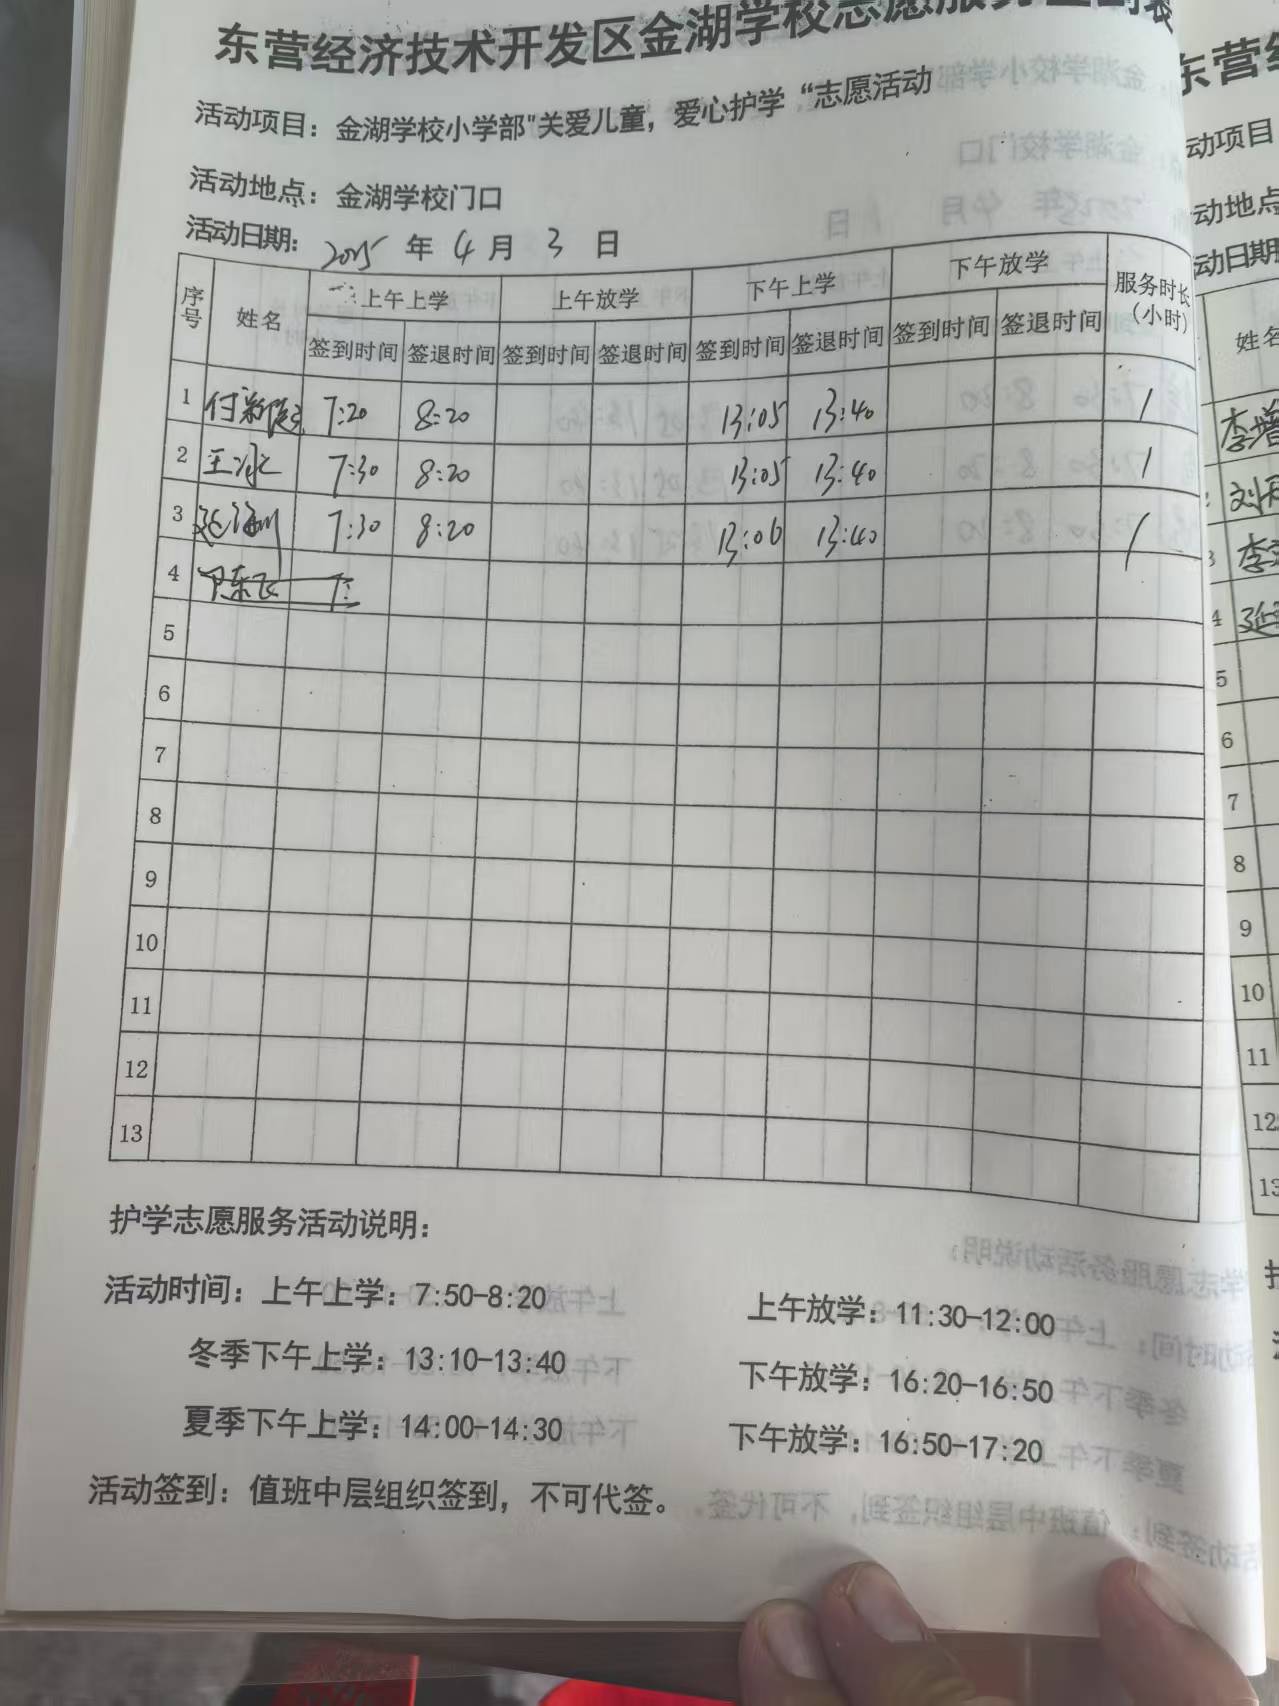 东营经济技术开发区金湖学校志愿服务签到表
活动项目：金湖学校小学部"关爱儿童，爱心护学“志愿活动
活动地点：金湖学校门口
活动日期：2025 年 4 月 3 日
序号 姓名 上午上学 上午放学 下午上学 下午放学 服务时长（小时）
签到时间 签退时间 签到时间 签退时间 签到时间 签退时间 签到时间 签退时间
1 7:20 8:20 13:05 13:40 1
2 王冰 7:30 8:20 13:05 13:40 1
3 7:30 8:20 13:06 13:40 1
4
5
6
7
8
9
10
11
12
13
护学志愿服务活动说明：
活动时间：上午上学：7:50-8:20 上午放学：11:30-12:00
冬季下午上学：13:10-13:40 下午放学：16:20-16:50
夏季下午上学：14:00-14:30 下午放学：16:50-17:20
活动签到：值班中层组织签到，不可代签。
东营经
动项目
动地点
动日期
姓名
李增
刘
李
延
5
6
7
8
9
10
11
12
13